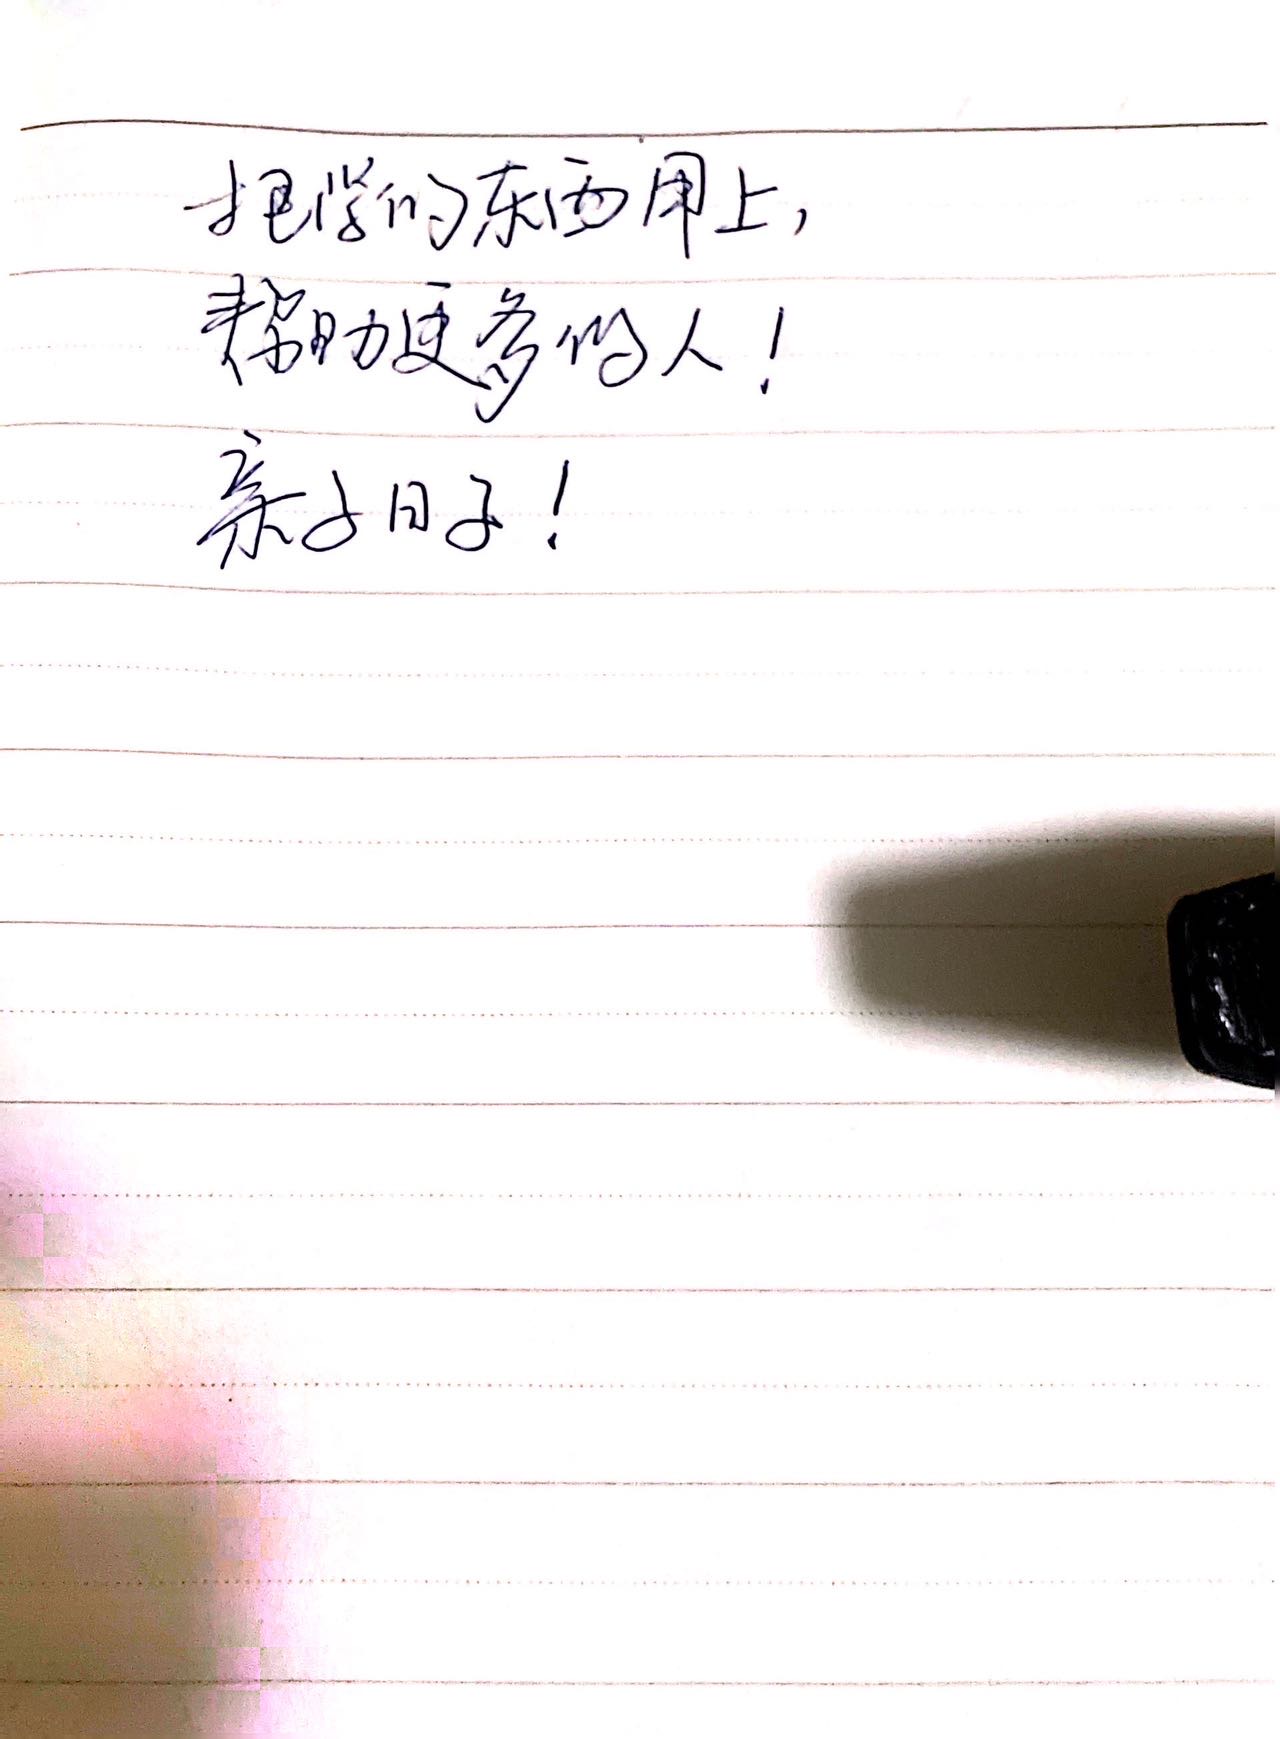 把学的东西用上，
帮助更多的人！
亲子日子！